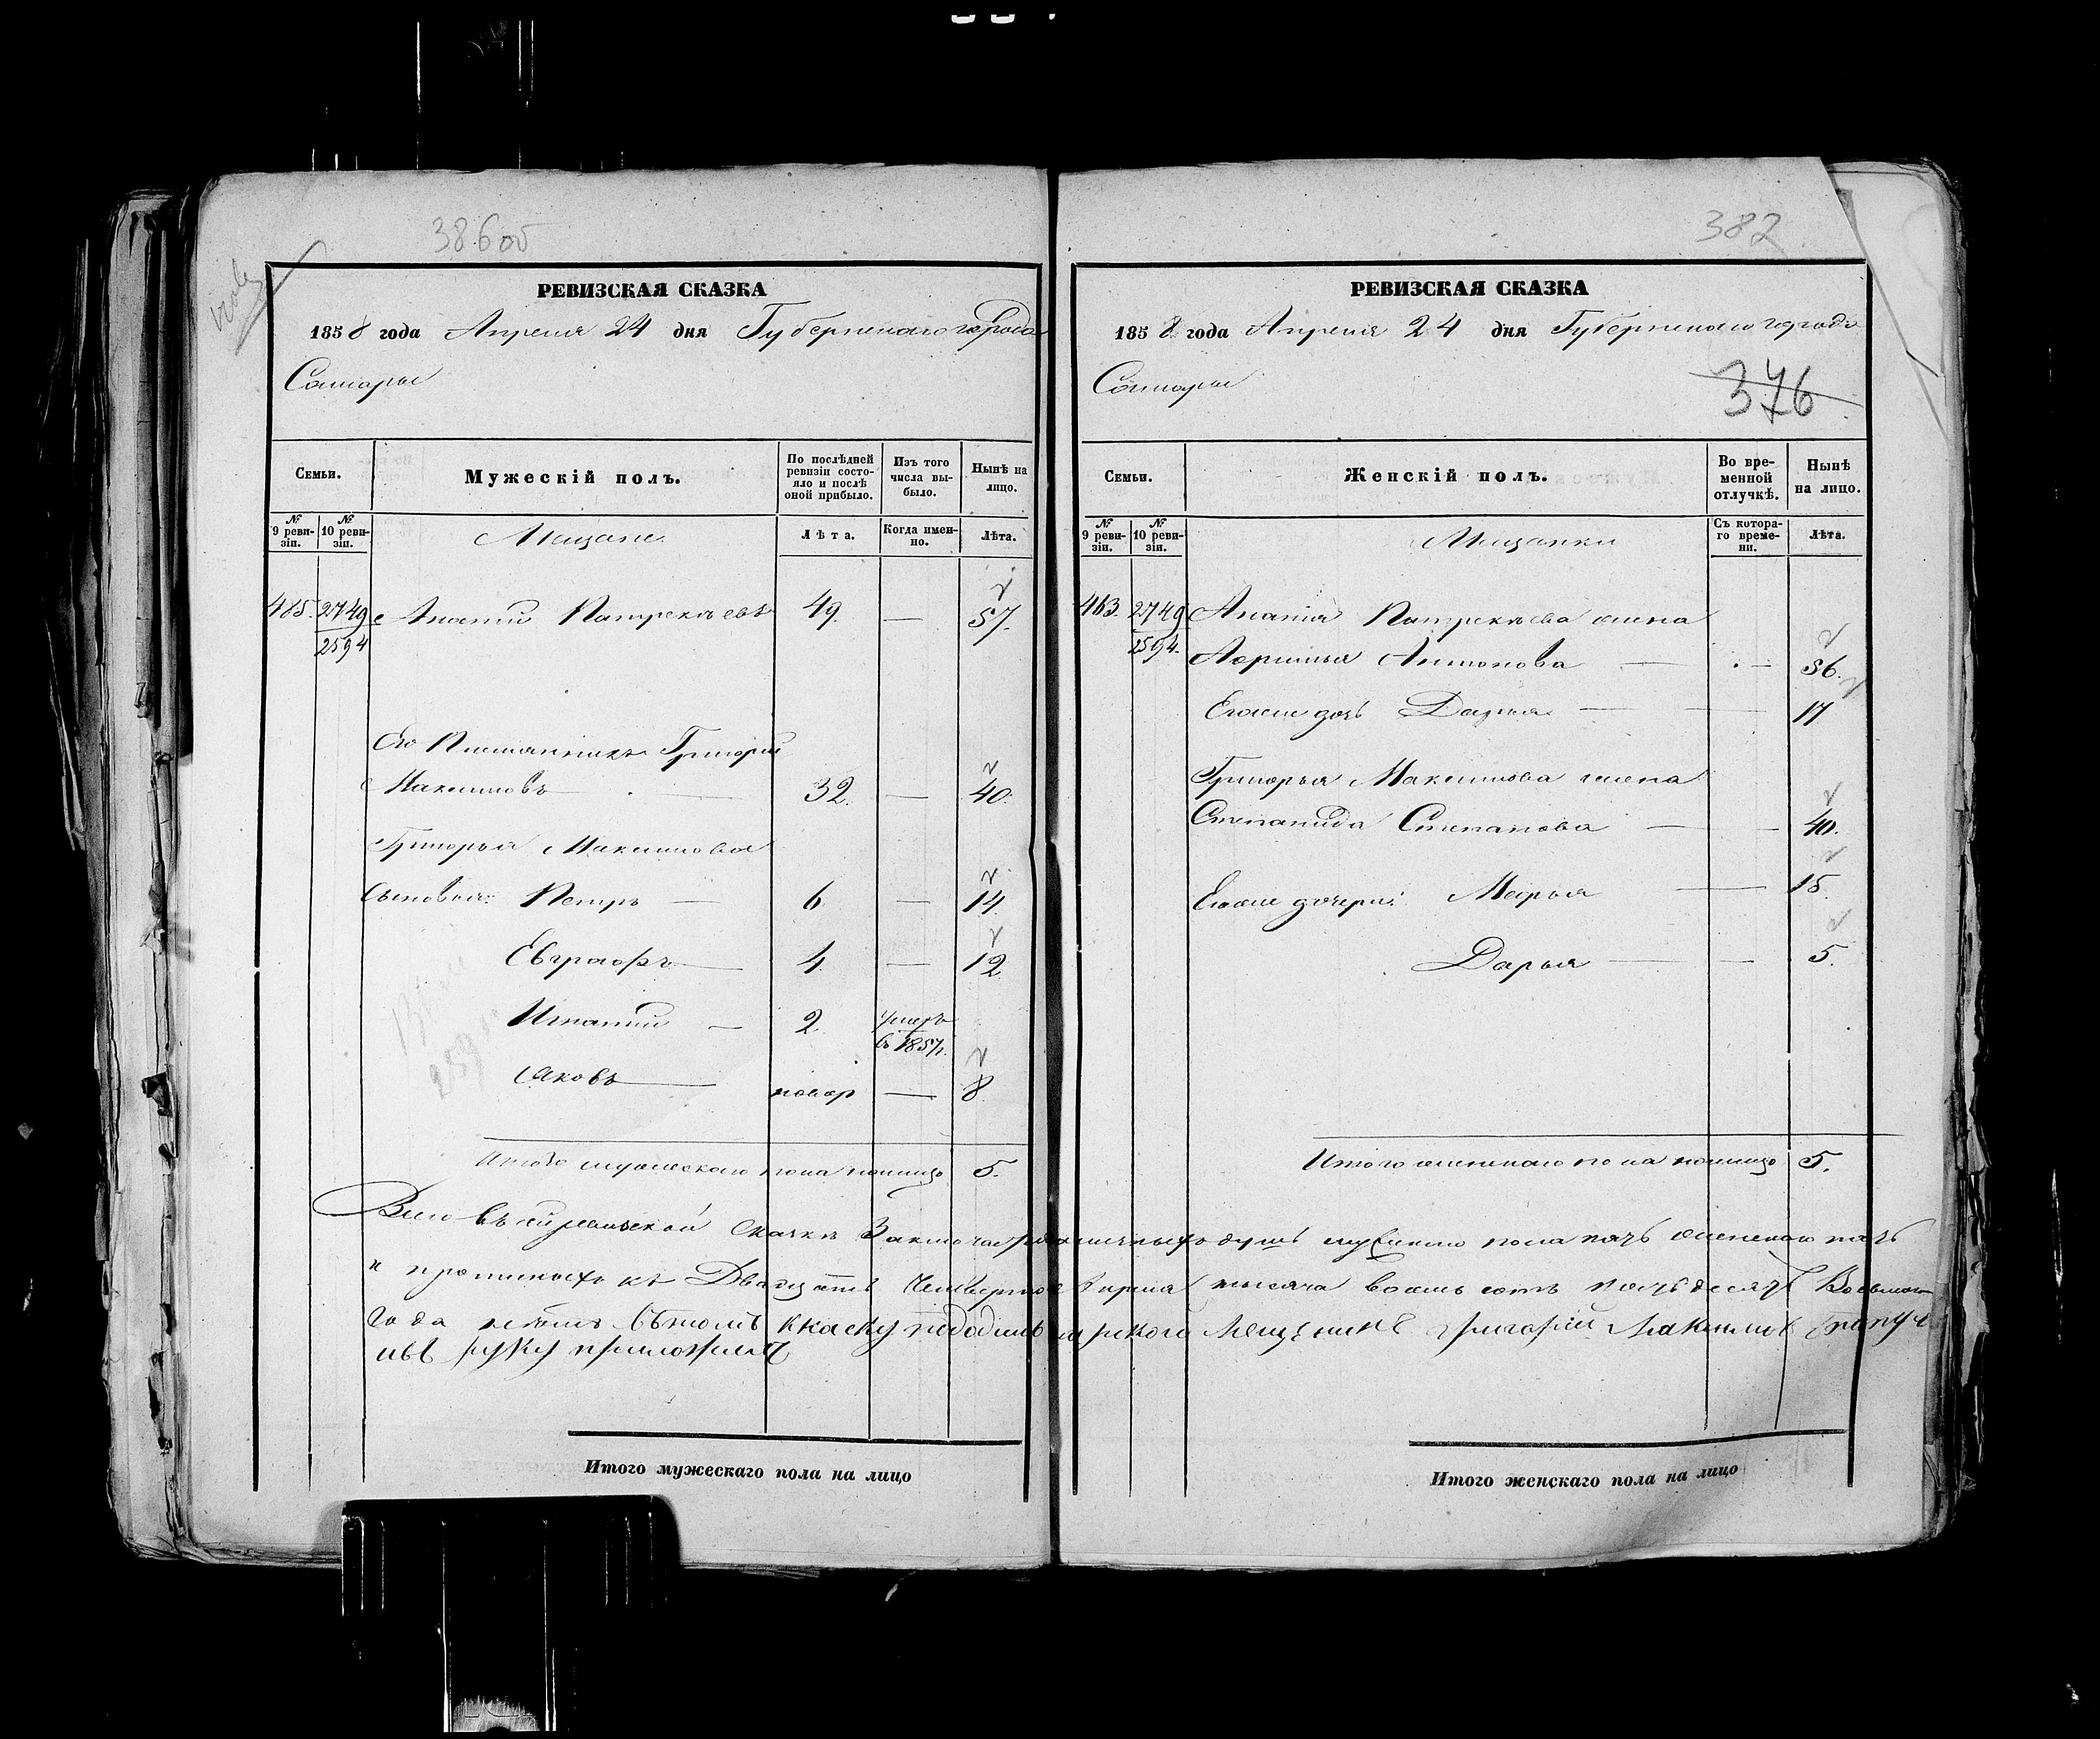 386об
РЕВИЗСКАЯ СКАЗКА
1858 года Апреля 24 дня Губернскаго города
Самары
Семьи.
Мужескій полъ.
По послѣдней ревизіи состояло и послѣ оной прибыло.
Изъ того числа выбыло.
Нынѣ на лицо.
№ 9 ревизіи.
№ 10 ревизіи.
Мещане
Лѣта.
Когда именно.
Лѣта.
485. 2749 Анатий Патрекѣевъ 49. — 57.
2594
Его Племянникъ Григорій
Максимовъ — 32. — 40.
Григорья Максимова
Сыновья: Петръ — 6 — 14.
Евграфъ — 4. — 12
Игнатий — 2. умеръ
въ 1857г.
Яковъ — новор — 8.
Итого мужескаго пола налицо 5.
382
РЕВИЗСКАЯ СКАЗКА
1858 года Апреля 24 дня Губернскаго города
Самары
376
Семьи.
Женскій полъ.
Во временной отлучкѣ.
Нынѣ на лицо.
№ 9 ревизіи.
№ 10 ревизіи.
Мещанки
Съ котораго времени.
Лѣта.
463. 2749 Анатія Патрекѣева жена
2594. Антонова — — 56.
Егоже дочь Дарья — — 17
Григорья Максимова жена
Степанида Степанова — — 40.
Егоже дочери: Марья — 15.
Дарья — — 5.
Итого женскаго пола налицо 5.
Всего въ сей ревизской Сказкѣ душъ мужескаго пола пять женскаго пять
и къ Двадцать Четвертое Апреля тысяча восемь сотъ пятьдесятъ Восьмого
Года Мещенинъ Григорий Максимов
руку приложилъ
Итого мужескаго пола на лицо
Итого женскаго пола на лицо